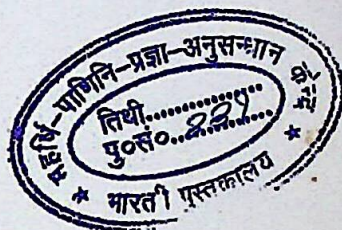 महर्षि-पाणिनि-प्रज्ञा-अनुसन्धान केन्द्र
तिथी..................
पु०सं०..221...........
* भारती पुस्तकालय *